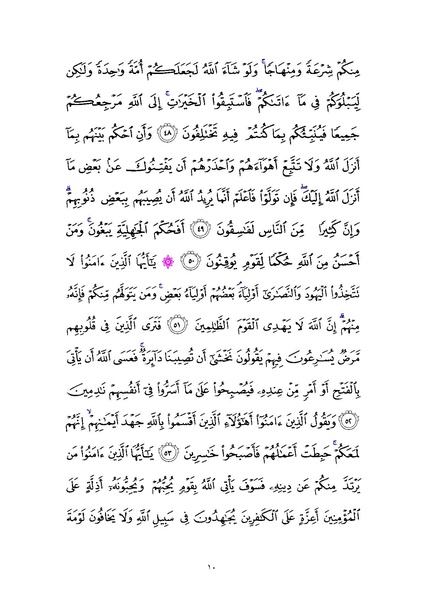 مِنكُمْ شِرْعَةً وَمِنْهَاجًا ۚ وَلَوْ شَآءَ ٱللَّهُ لَجَعَلَكُمْ أُمَّةً وَٰحِدَةً وَلَٰكِن
لِّيَبْلُوَكُمْ فِى مَآ ءَاتَىٰكُمْ ۖ فَٱسْتَبِقُوا۟ ٱلْخَيْرَٰتِ ۚ إِلَى ٱللَّهِ مَرْجِعُكُمْ
جَمِيعًا فَيُنَبِّئُكُم بِمَا كُنتُمْ فِيهِ تَخْتَلِفُونَ ٤٨ وَأَنِ ٱحْكُم بَيْنَهُم بِمَآ
أَنزَلَ ٱللَّهُ وَلَا تَتَّبِعْ أَهْوَآءَهُمْ وَٱحْذَرْهُمْ أَن يَفْتِنُوكَ عَنۢ بَعْضِ مَآ
أَنزَلَ ٱللَّهُ إِلَيْكَ ۖ فَإِن تَوَلَّوْا۟ فَٱعْلَمْ أَنَّمَا يُرِيدُ ٱللَّهُ أَن يُصِيبَهُم بِبَعْضِ ذُنُوبِهِمْ ۗ
وَإِنَّ كَثِيرًا مِّنَ ٱلنَّاسِ لَفَٰسِقُونَ ٤٩ أَفَحُكْمَ ٱلْجَٰهِلِيَّةِ يَبْغُونَ ۚ وَمَنْ
أَحْسَنُ مِنَ ٱللَّهِ حُكْمًا لِّقَوْمٍ يُوقِنُونَ ٥٠ يَٰٓأَيُّهَا ٱلَّذِينَ ءَامَنُوا۟ لَا
تَتَّخِذُوا۟ ٱلْيَهُودَ وَٱلنَّصَٰرَىٰٓ أَوْلِيَآءَ ۘ بَعْضُهُمْ أَوْلِيَآءُ بَعْضٍ ۚ وَمَن يَتَوَلَّهُم مِّنكُمْ فَإِنَّهُۥ
مِنْهُمْ ۗ إِنَّ ٱللَّهَ لَا يَهْدِى ٱلْقَوْمَ ٱلظَّٰلِمِينَ ٥١ فَتَرَى ٱلَّذِينَ فِى قُلُوبِهِم
مَّرَضٌ يُسَٰرِعُونَ فِيهِمْ يَقُولُونَ نَخْشَىٰٓ أَن تُصِيبَنَا دَآئِرَةٌ ۚ فَعَسَى ٱللَّهُ أَن يَأْتِىَ
بِٱلْفَتْحِ أَوْ أَمْرٍ مِّنْ عِندِهِۦ فَيُصْبِحُوا۟ عَلَىٰ مَآ أَسَرُّوا۟ فِىٓ أَنفُسِهِمْ نَٰدِمِينَ
٥٢ وَيَقُولُ ٱلَّذِينَ ءَامَنُوٓا۟ أَهَٰٓؤُلَآءِ ٱلَّذِينَ أَقْسَمُوا۟ بِٱللَّهِ جَهْدَ أَيْمَٰنِهِمْ ۙ إِنَّهُمْ
لَمَعَكُمْ ۚ حَبِطَتْ أَعْمَٰلُهُمْ فَأَصْبَحُوا۟ خَٰسِرِينَ ٥٣ يَٰٓأَيُّهَا ٱلَّذِينَ ءَامَنُوا۟ مَن
يَرْتَدَّ مِنكُمْ عَن دِينِهِۦ فَسَوْفَ يَأْتِى ٱللَّهُ بِقَوْمٍ يُحِبُّهُمْ وَيُحِبُّونَهُۥٓ أَذِلَّةٍ عَلَى
ٱلْمُؤْمِنِينَ أَعِزَّةٍ عَلَى ٱلْكَٰفِرِينَ يُجَٰهِدُونَ فِى سَبِيلِ ٱللَّهِ وَلَا يَخَافُونَ لَوْمَةَ
١٠